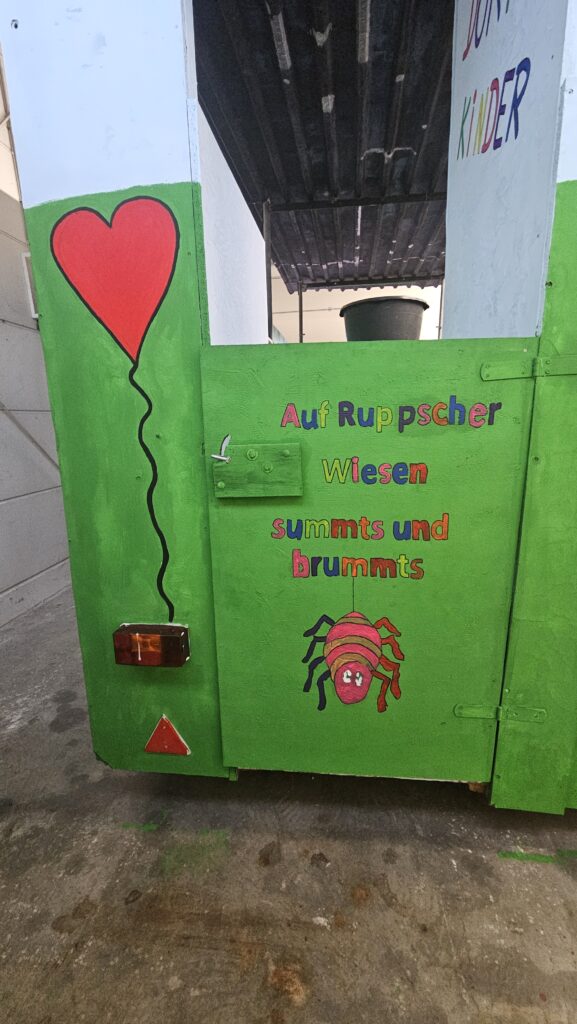 KINDER
Auf Ruppscher
Wiesen
summts und
brummts